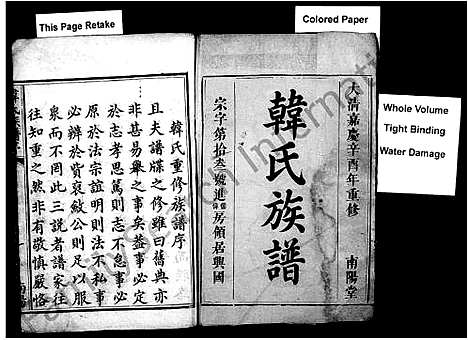 This Page Retake
Colored Paper
Whole Volume
Tight Binding
Water Damage
大清嘉慶辛酉年重修
韓氏族譜
南陽堂
宗字第拾叁號進
房領居興國
韓氏重修族譜序
且夫譜牒之修雖曰舊典亦
非甚易舉之事矣益事必定
於志孝思篤則志不怠事必
原於法宗誼明則法不私事
必辨於貲裒斂公則足以服
衆而不罔此三説者譜家往
往知重之然非有敬慎嚴恪